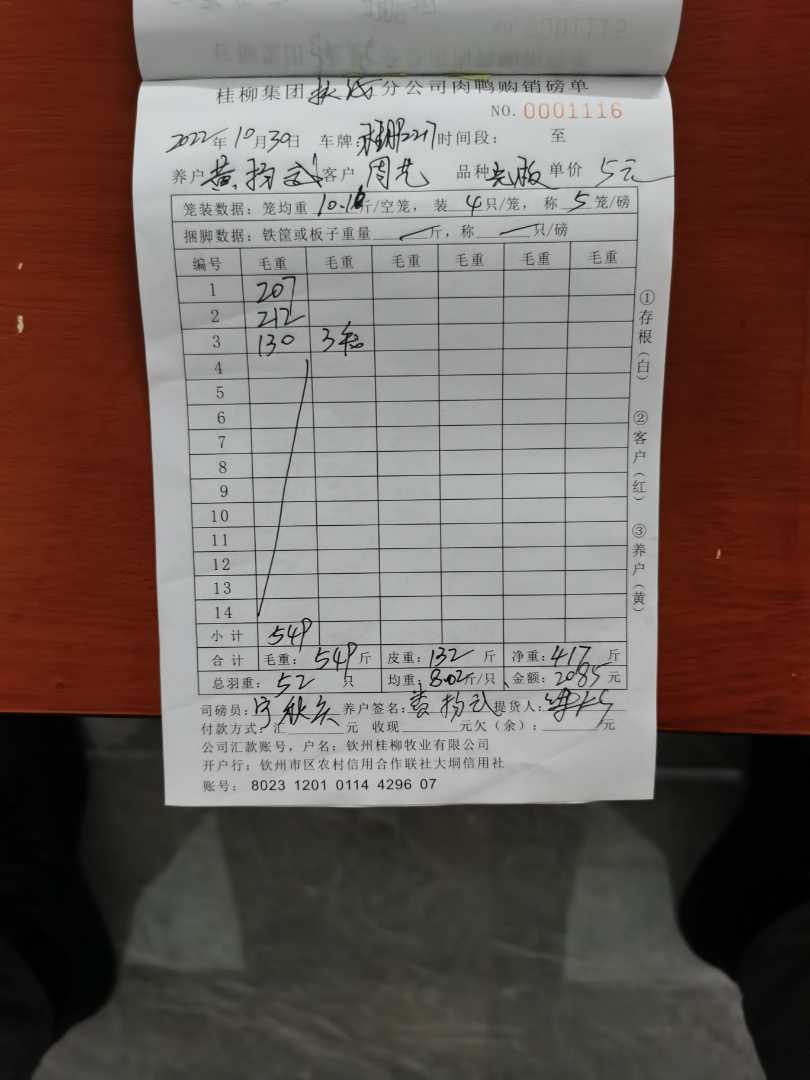 0001115
桂柳集团 分公司肉鸭购销磅单
NO. 0001116
2022年10月30日 车牌: 2217时间段: 至
养户黄扬武 客户周先 品种 单价 5元
笼装数据: 笼均重10.1斤/空笼, 装4只/笼, 称5笼/磅
捆脚数据: 铁筐或板子重量 斤, 称 只/磅
编号 毛重 毛重 毛重 毛重 毛重 毛重
1 207
2 212
3 130 3笼
4
5
6
7
8
9
10
11
12
13
14
小计 549
合计 毛重: 549斤 皮重: 132斤 净重: 417斤
总羽重: 52只 均重: 8.02斤/只 金额: 2085元
司磅员: 养户签名: 黄扬武 提货人:
付款方式: 汇 元 收现 元欠(余): 元
公司汇款账号, 户名: 钦州桂柳牧业有限公司
开户行: 钦州市区农村信用合作联社大垌信用社
账号: 8023 1201 0114 4296 07
①存根(白)
②客户(红)
③养户(黄)